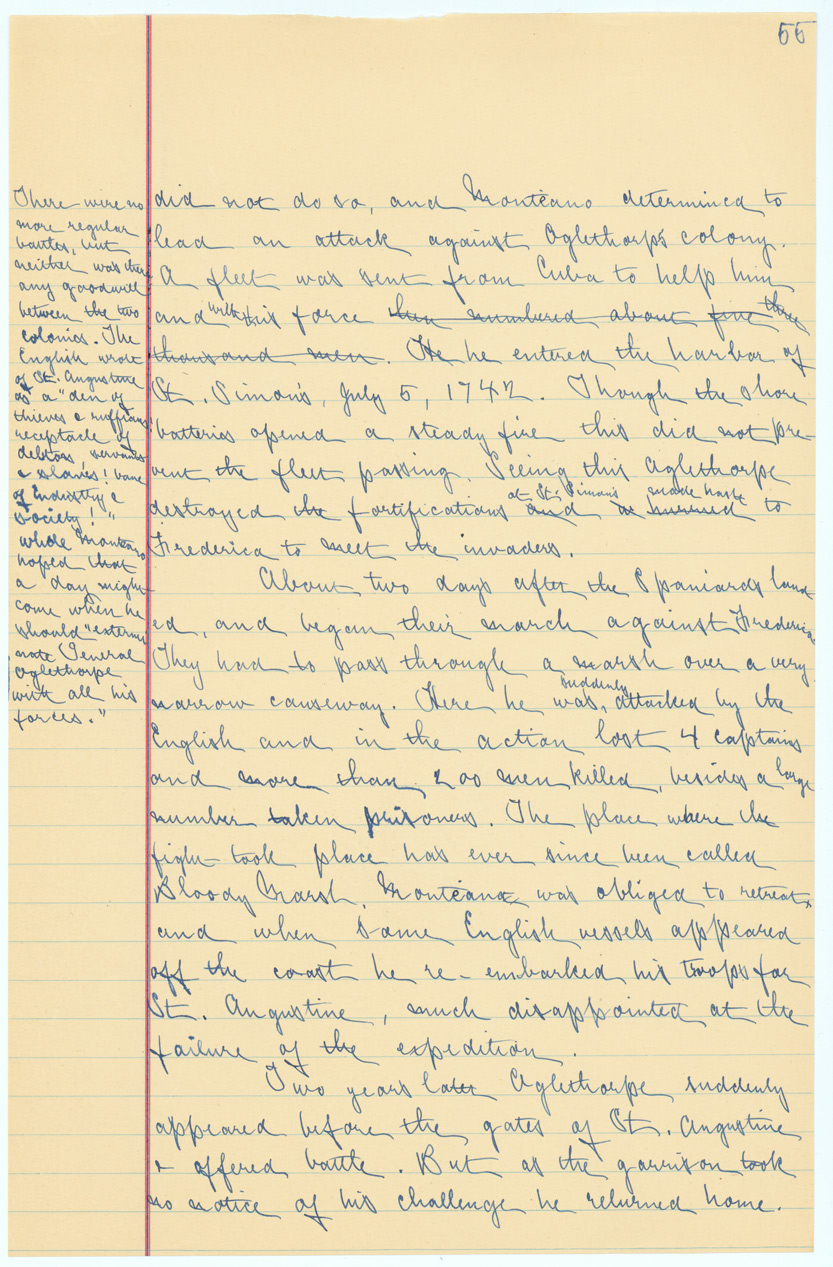 55
There were no
more regular
battles, but
neither was there
any goodwill
between the two
colonies. The
English wrote
of St. Augustine
as a "den of
thieves & ruffians!
receptacle of
debtors, servants
& slaves! bane
of industry &
society!"
while Monteano
hoped that
a day might
come when he
should "extermi-
nate General
Oglethorpe
with all his
forces."
did not do so, and Monteano determined to
lead an attack against Oglethorpe's colony.
A fleet was sent from Cuba to help him
and with this force has numbered about five three
thousand men. He he entered the harbor of
St. Simon's, July 5, 1742. Though the shore
batteries opened a steady fire this did not pre-
vent the fleet passing. Seeing this Oglethorpe
at St. Simons made haste
destroyed the fortifications and hurried to
Frederica to meet the invaders.
About two days after the Spaniards land-
ed, and began their march against Frederica
They had to pass through a marsh over a very
narrow causeway. Here he was, suddenly attacked by the
English and in the action lost 4 captains
and more than 200 men killed, besides a large
number taken prisoners. The place where the
fight took place has ever since been called
Bloody Marsh. Monteano was obliged to retreat,
and when some English vessels appeared
off the coast he re-embarked his troops for
St. Augustine, much disappointed at the
failure of the expedition.
Two years later Oglethorpe suddenly
appeared before the gates of St. Augustine
& offered battle. But as the garrison took
no notice of his challenge he returned home.